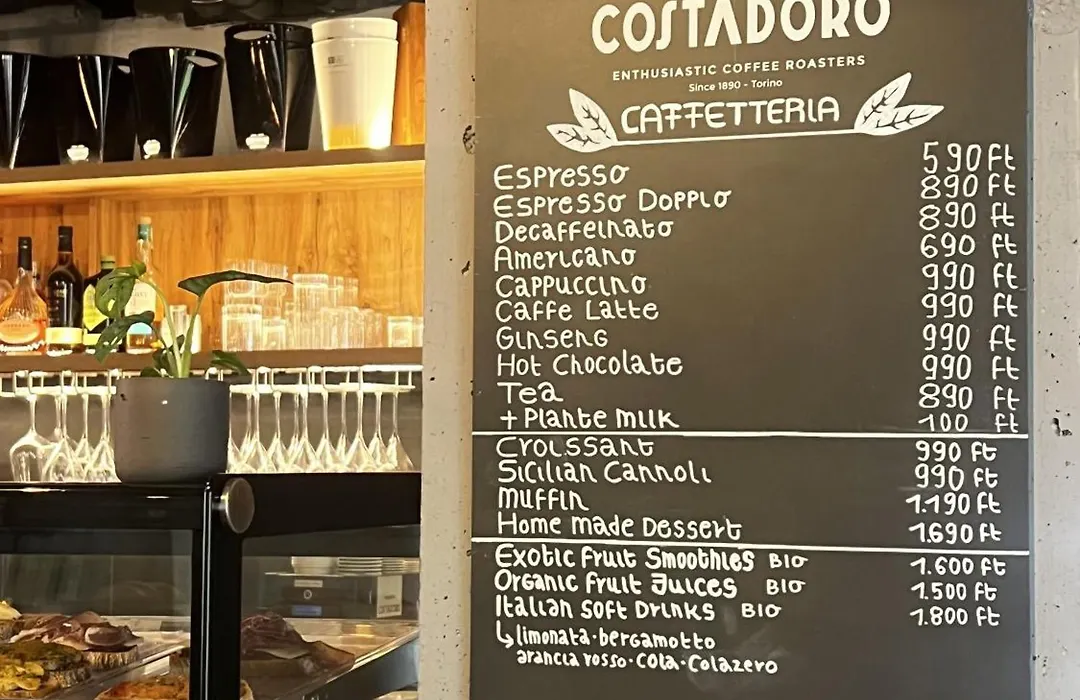 COSTADORO
ENTHUSIASTIC COFFEE ROASTERS
Since 1890 - Torino
CAFFETTERIA
Espresso 590 Ft
Espresso Doppio 890 Ft
Decaffeinato 890 Ft
Americano 690 Ft
Cappuccino 990 Ft
Caffe Latte 990 Ft
Ginseng 990 Ft
Hot Chocolate 990 Ft
Tea 890 Ft
+ Plante milk 100 Ft
Croissant 990 Ft
Sicilian Cannoli 990 Ft
Muffin 1.190 Ft
Home made Dessert 1.690 Ft
Exotic Fruit Smoothies BIO 1.600 Ft
Organic Fruit Juices BIO 1.500 Ft
Italian Soft Drinks BIO 1.800 Ft
↳ limonata · bergamotto
arancia rosso · cola · Colazero
COSTADORO